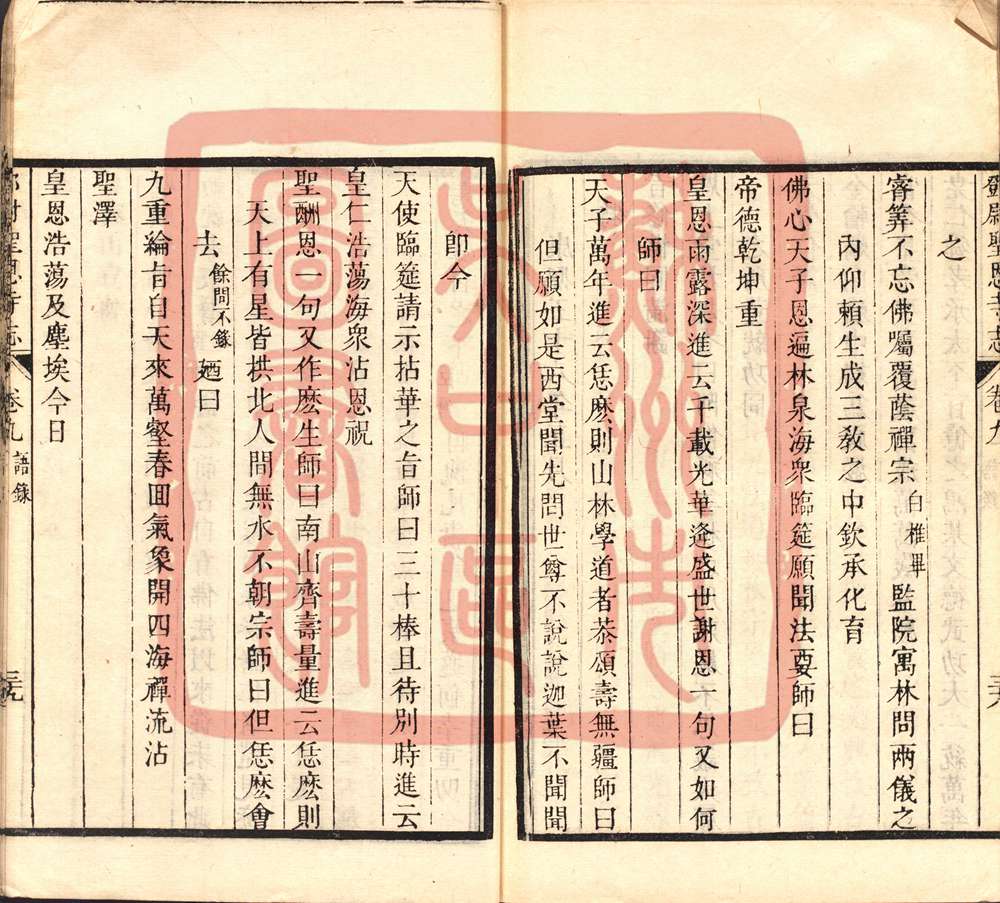 之
睿筭不忘佛囑覆蔭禪宗白椎畢監院寓林問兩儀之
內仰賴生成三敎之中欽承化育
佛心天子恩遍林泉海衆臨筵願聞法要師曰
帝德乾坤重
皇恩雨露深進云千載光華逢盛世謝恩一句又如何
師曰
天子萬年進云恁麽則山林學道者恭頌壽無疆師曰
但願如是西堂聞先問世尊不說說迦葉不聞聞
卽今
天使臨筵請示拈華之旨師曰三十棒且待別時進云
皇仁浩蕩海衆沾恩祝
聖酬恩一句又作麽生師曰南山齊壽量進云恁麽則
天上有星皆拱北人間無水不朝宗師曰但恁麽會
去餘問不錄廼曰
九重綸旨自天來萬壑春囬氣象開四海禪流沾
聖澤
皇恩浩蕩及塵埃今日
卷九 語錄
蘇州大區圖書館